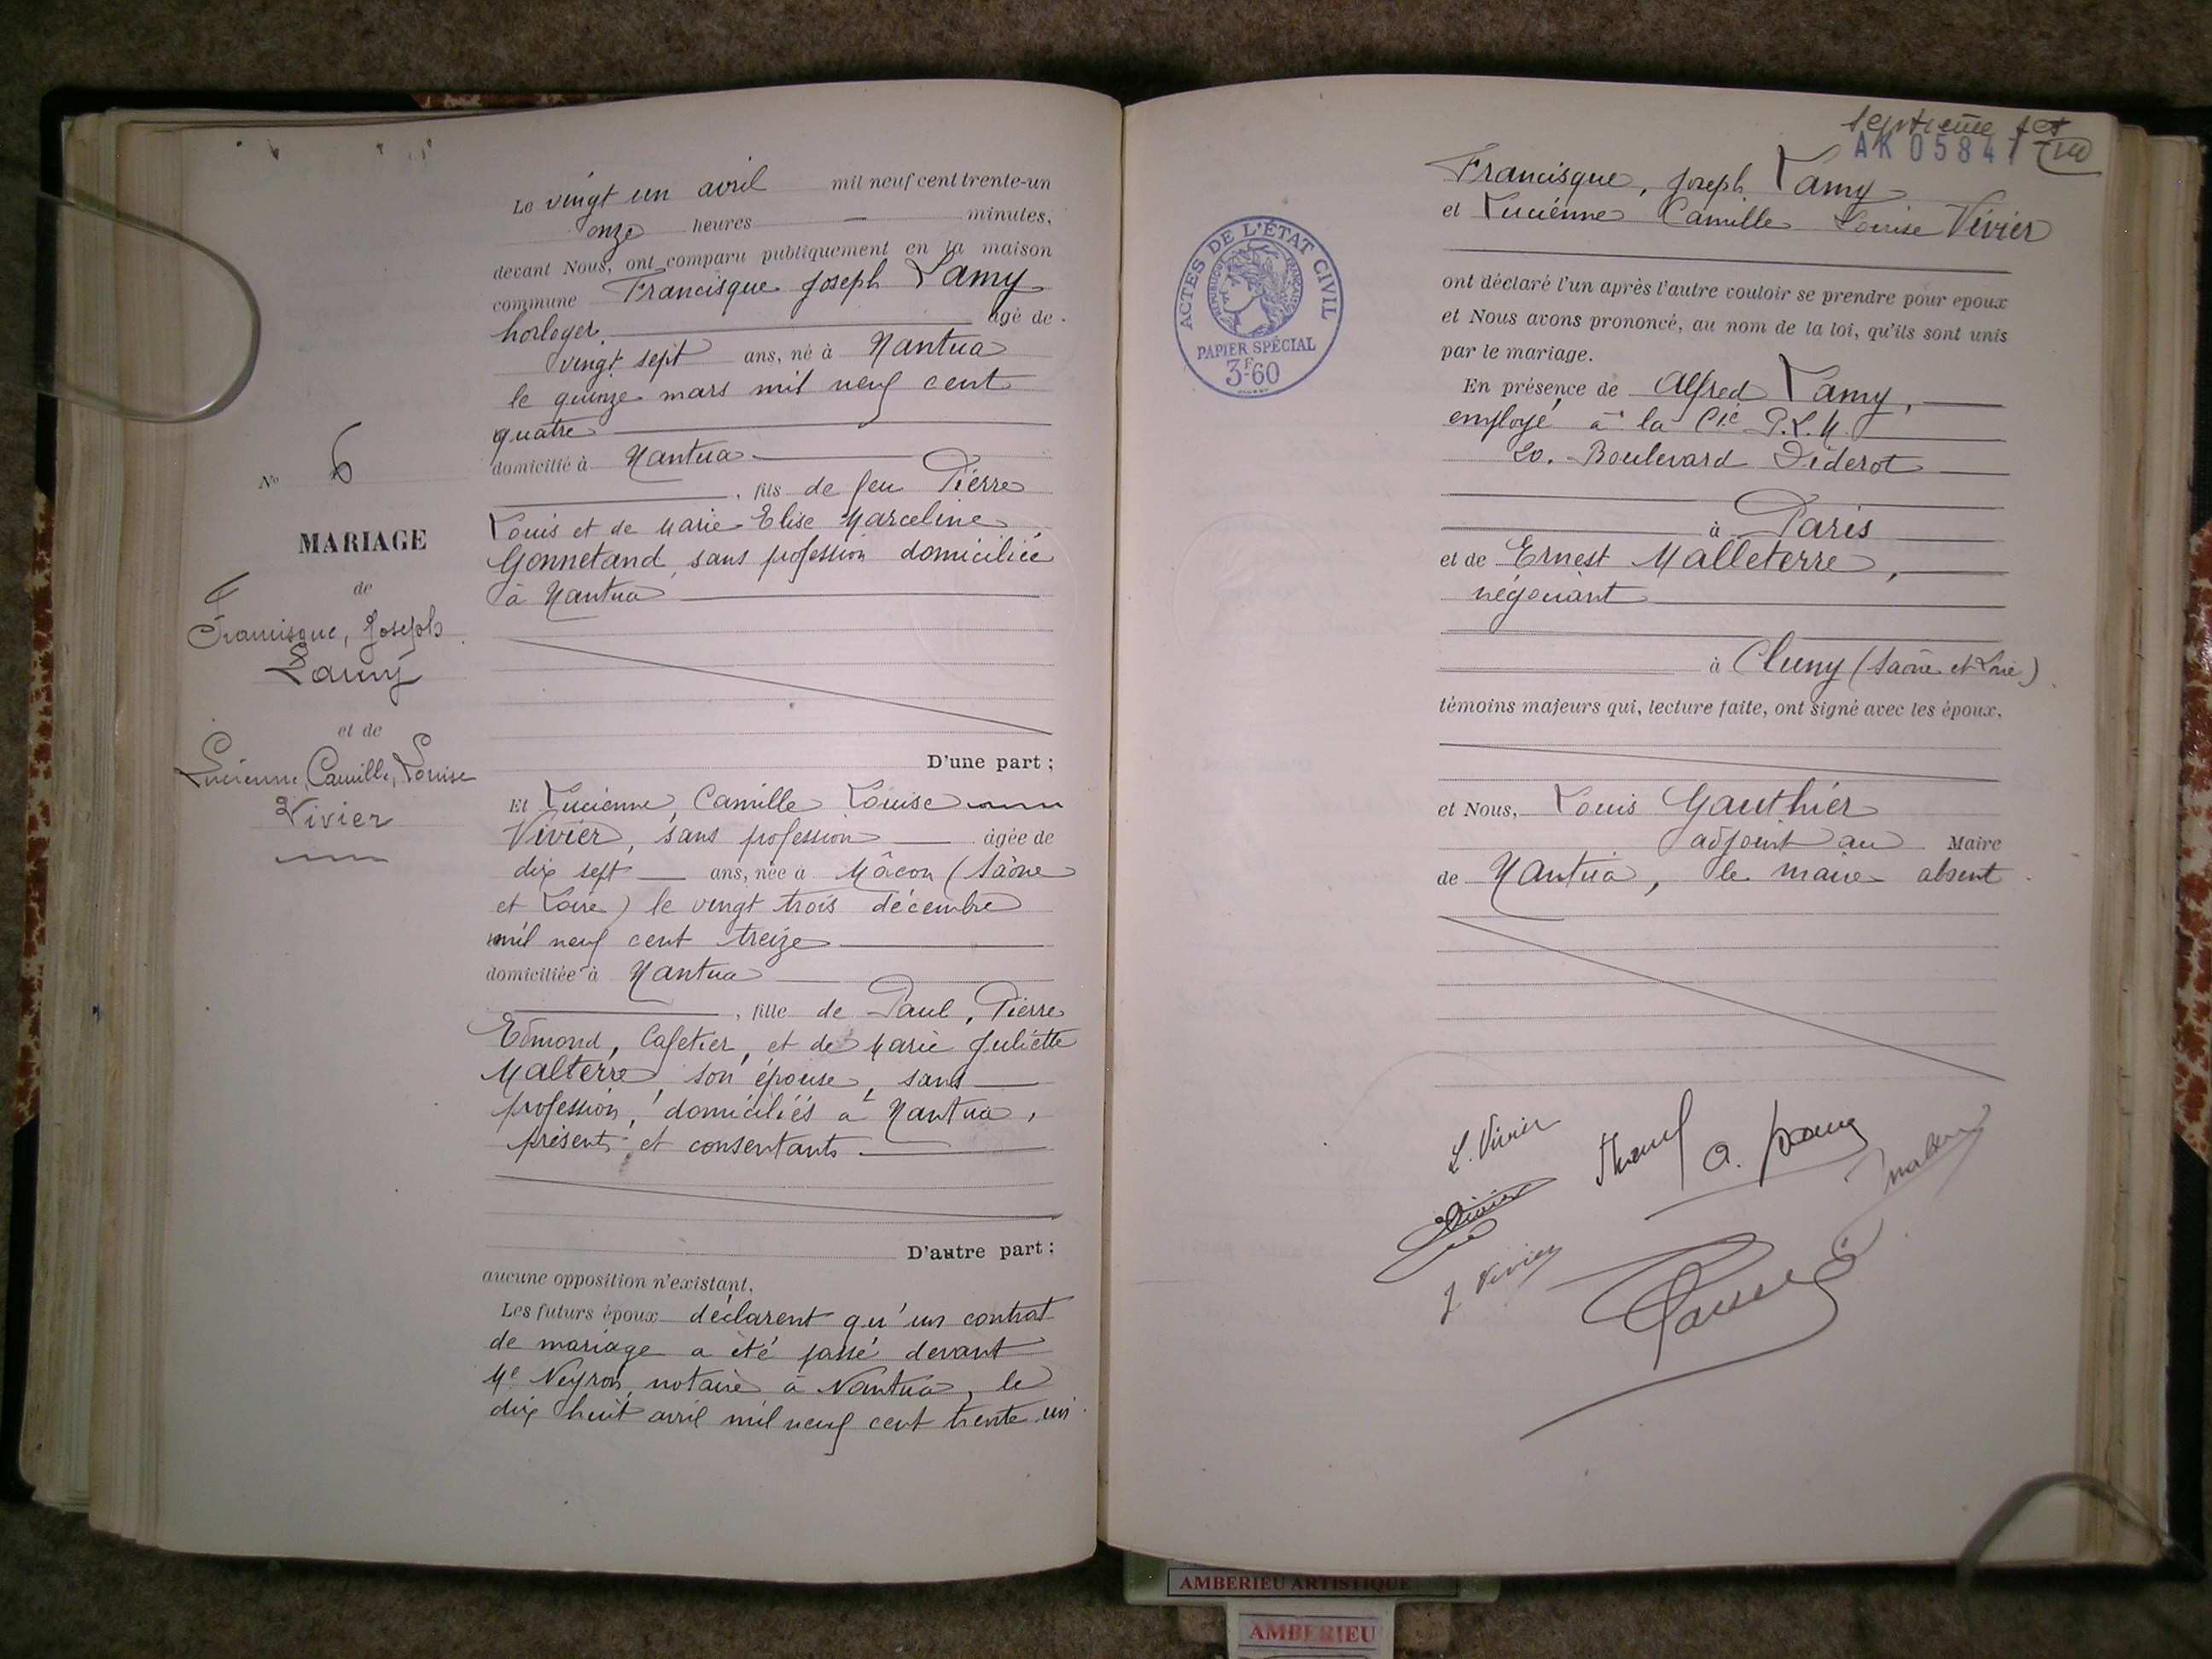 Le vingt un avril mil neuf cent trente-un
onze heures — minutes,
devant Nous, ont comparu publiquement en la maison
commune Francisque Joseph Lamy
horloger, âgé de
vingt sept ans, né à Nantua
le quinze mars mil neuf cent
quatre
domicilié à Nantua
, fils de feu Pierre
Louis et de Marie Elise Marceline
Gonnetand, sans profession domiciliée
à Nantua
D'une part ;
Et Lucienne, Camille Louise
Vivier, sans profession âgée de
dix sept ans, née à Mâcon (Saône
et Loire) le vingt trois décembre
mil neuf cent treize
domiciliée à Nantua
, fille de Paul, Pierre
Edmond, Cafetier, et de Marie Juliette
Malterre, son épouse, sans
profession, domiciliés à Nantua,
présents et consentants
D'autre part ;
aucune opposition n'existant,
Les futurs époux déclarent qu'un contrat
de mariage a été passé devant
Me Neyron, notaire à Nantua, le
dix huit avril mil neuf cent trente un
No 6
MARIAGE
de
Francisque, Joseph
Lamy
et de
Lucienne, Camille, Louise
Vivier
septième
AK 0584
Francisque, Joseph Lamy
et Lucienne Camille Louise Vivier
ont déclaré l'un après l'autre vouloir se prendre pour époux
et Nous avons prononcé, au nom de la loi, qu'ils sont unis
par le mariage.
En présence de Alfred Lamy,
employé à la Cie P.L.M.
20. Boulevard Diderot
à Paris
et de Ernest Malleterre,
négociant
à Cluny (Saône et Loire)
témoins majeurs qui, lecture faite, ont signé avec les époux,
et Nous, Louis Gauthier
adjoint au Maire
de Nantua, le maire absent
L. Vivier
A. Lamy
Vivier
J. Vivier
ACTES DE L'ÉTAT CIVIL
RÉPUBLIQUE FRANÇAISE
PAPIER SPÉCIAL
3F60
AMBERIEU ARTISTIQUE
AMBERIEU